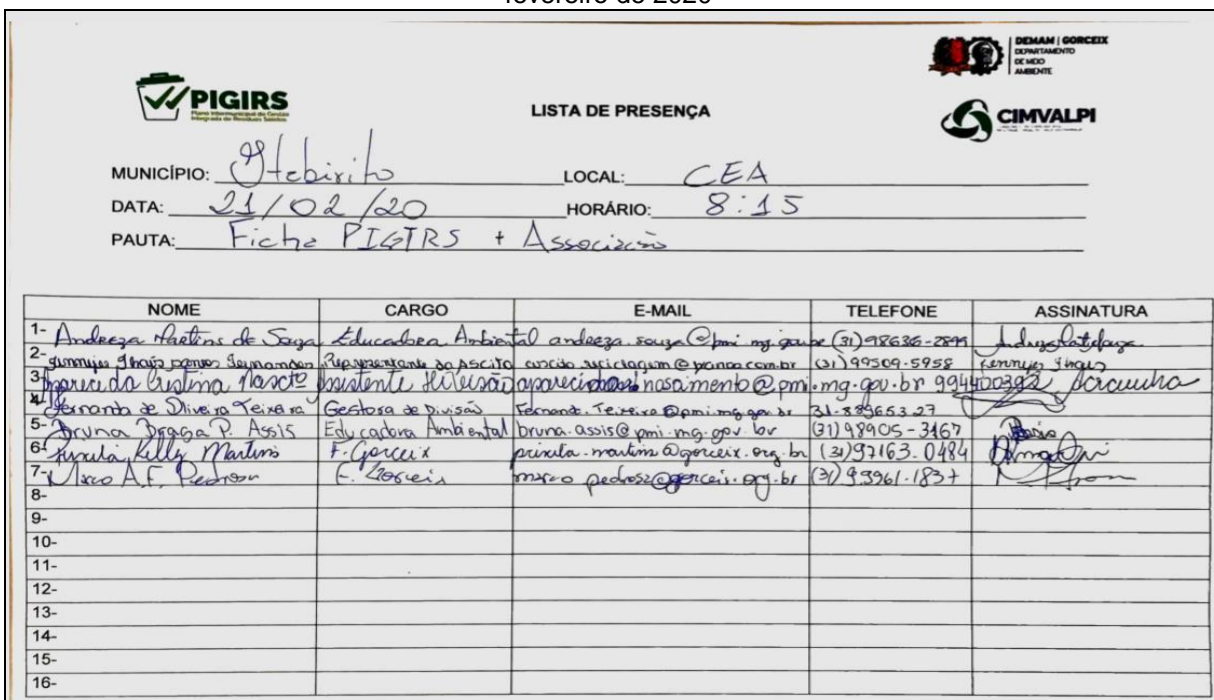 fevereiro de 2020
DEMAM | GORCEIX
DEPARTAMENTO
DE MEIO
AMBIENTE
PIGIRS
Plano Intermunicipal de Gestão
Integrada de Resíduos Sólidos
LISTA DE PRESENÇA
CIMVALPI
MUNICÍPIO: Itabirito LOCAL: CEA
DATA: 21/02/20 HORÁRIO: 8:15
PAUTA: Ficha PIGIRS + Associação
NOME CARGO E-MAIL TELEFONE ASSINATURA
1- Andreza Martins de Souza Educadora Ambiental andreza.souza@pmi.mg.gov.br (31) 98636-2899
2- Representante da Ascito ascito.reciclagem@yahoo.com.br (31) 99509-5958
3- Aparecida Cristina Nascto Assistente aparecida.nascimento@pmi.mg.gov.br 994400392
4- Fernanda de Oliveira Teixeira Gestora de Divisão Fernanda.Teixeira@pmi.mg.gov.br 31-88965327
5- Bruna Braga P. Assis Educadora Ambiental bruna.assis@pmi.mg.gov.br (31) 98905-3467
6- Priscila Kelly Martins F. Gorceix priscila.martins@gorceix.org.br (31) 97163.0484
7- Marco A.F. Pedrosa F. Gorceix marco.pedrosa@gorceix.org.br (31) 99961.1837
8-
9-
10-
11-
12-
13-
14-
15-
16-